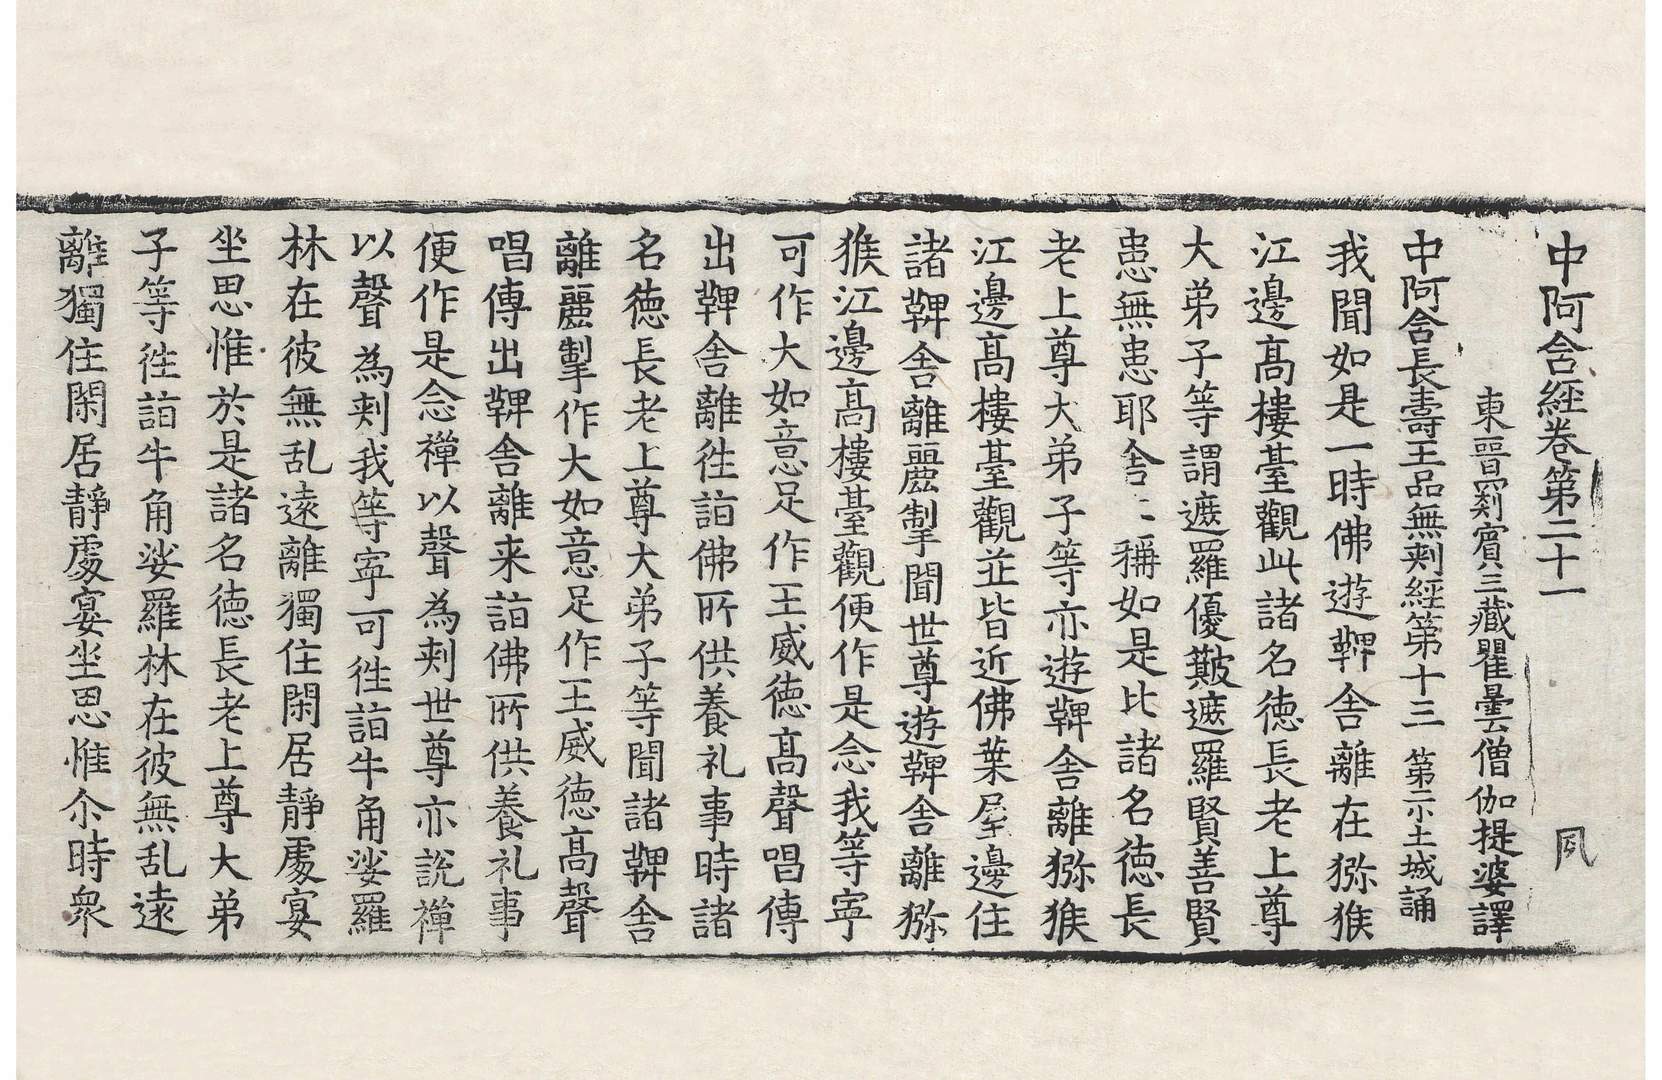 中阿含經卷第二十一　夙
東晉罽賓三藏瞿曇僧伽提婆譯
中阿含長壽王品無刾經第十三 第二小土城誦
我聞如是一時佛遊鞞舍離在獼猴
江邊髙樓臺觀此諸名德長老上尊
大弟子等謂遮羅優簸遮羅賢善賢
患無患耶舍〻稱如是比諸名德長
老上尊大弟子等亦遊鞞舍離獼猴
江邊髙樓臺觀並皆近佛葉屋邊住
諸鞞舍離麗掣聞世尊遊鞞舍離獼
猴江邊髙樓臺觀便作是念我等寧
可作大如意足作王威德髙聲唱傳
出鞞舍離徃詣佛所供養礼事時諸
名德長老上尊大弟子等聞諸鞞舍
離麗掣作大如意足作王威德髙聲
唱傳出鞞舍離来詣佛所供養礼事
便作是念禪以聲為刾世尊亦說禪
以聲為刾我等寧可徃詣牛角娑羅
林在彼無乱遠離獨住閑居靜處宴
坐思惟於是諸名德長老上尊大弟
子等徃詣牛角娑羅林在彼無乱遠
離獨住閑居靜處宴坐思惟尒時衆